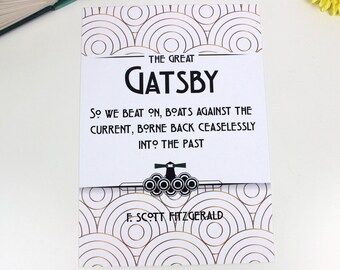 THE GREAT
GATSBY
SO WE BEAT ON, BOATS AGAINST THE
CURRENT, BORNE BACK CEASELESSLY
INTO THE PAST
F. SCOTT FITZGERALD